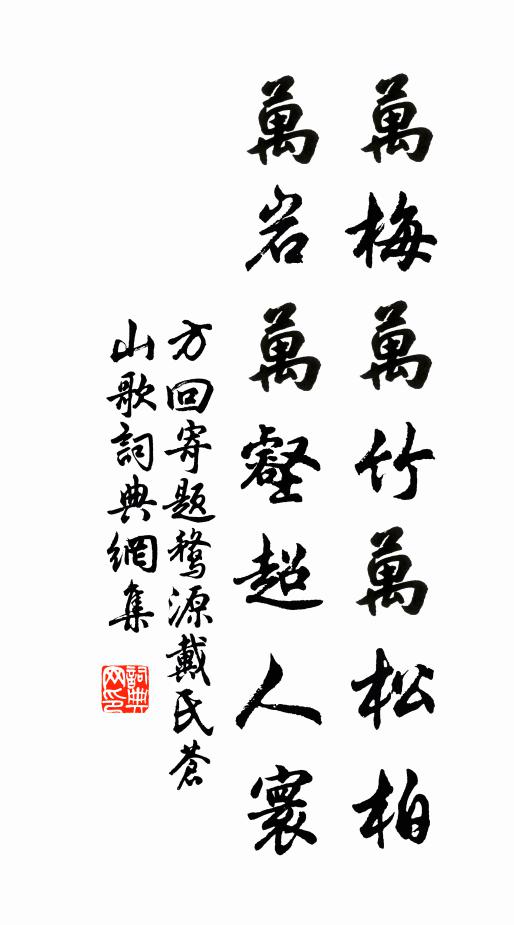 萬梅萬竹萬松柏
萬岩萬壑超人寰
方回寄題鶩源戴氏蒼
山歌詞典網集
詞典
网印